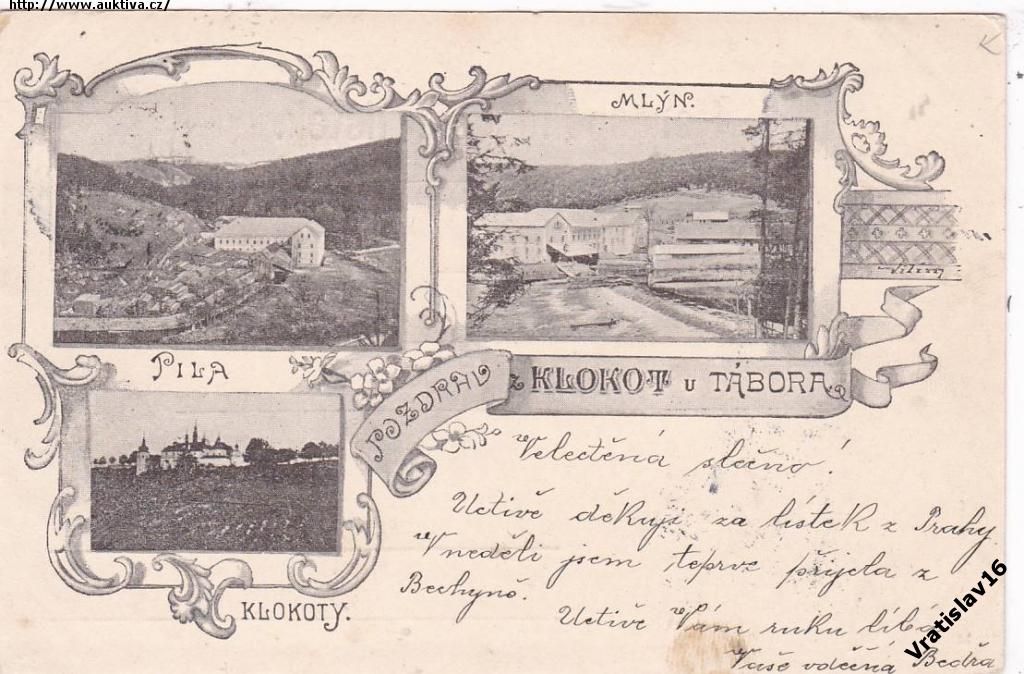 http://www.auktiva.cz/
MLÝN.
PILA
POZDRAV z KLOKOT u TÁBORA.
KLOKOTY.
Velectěná slečno!
Uctivě děkuji za lístek z Prahy
V neděli jsem teprve přijela z
Bechyně.
Uctivě Vám ruku líbá
Vaše vděčná Bedřa
Vratislav16